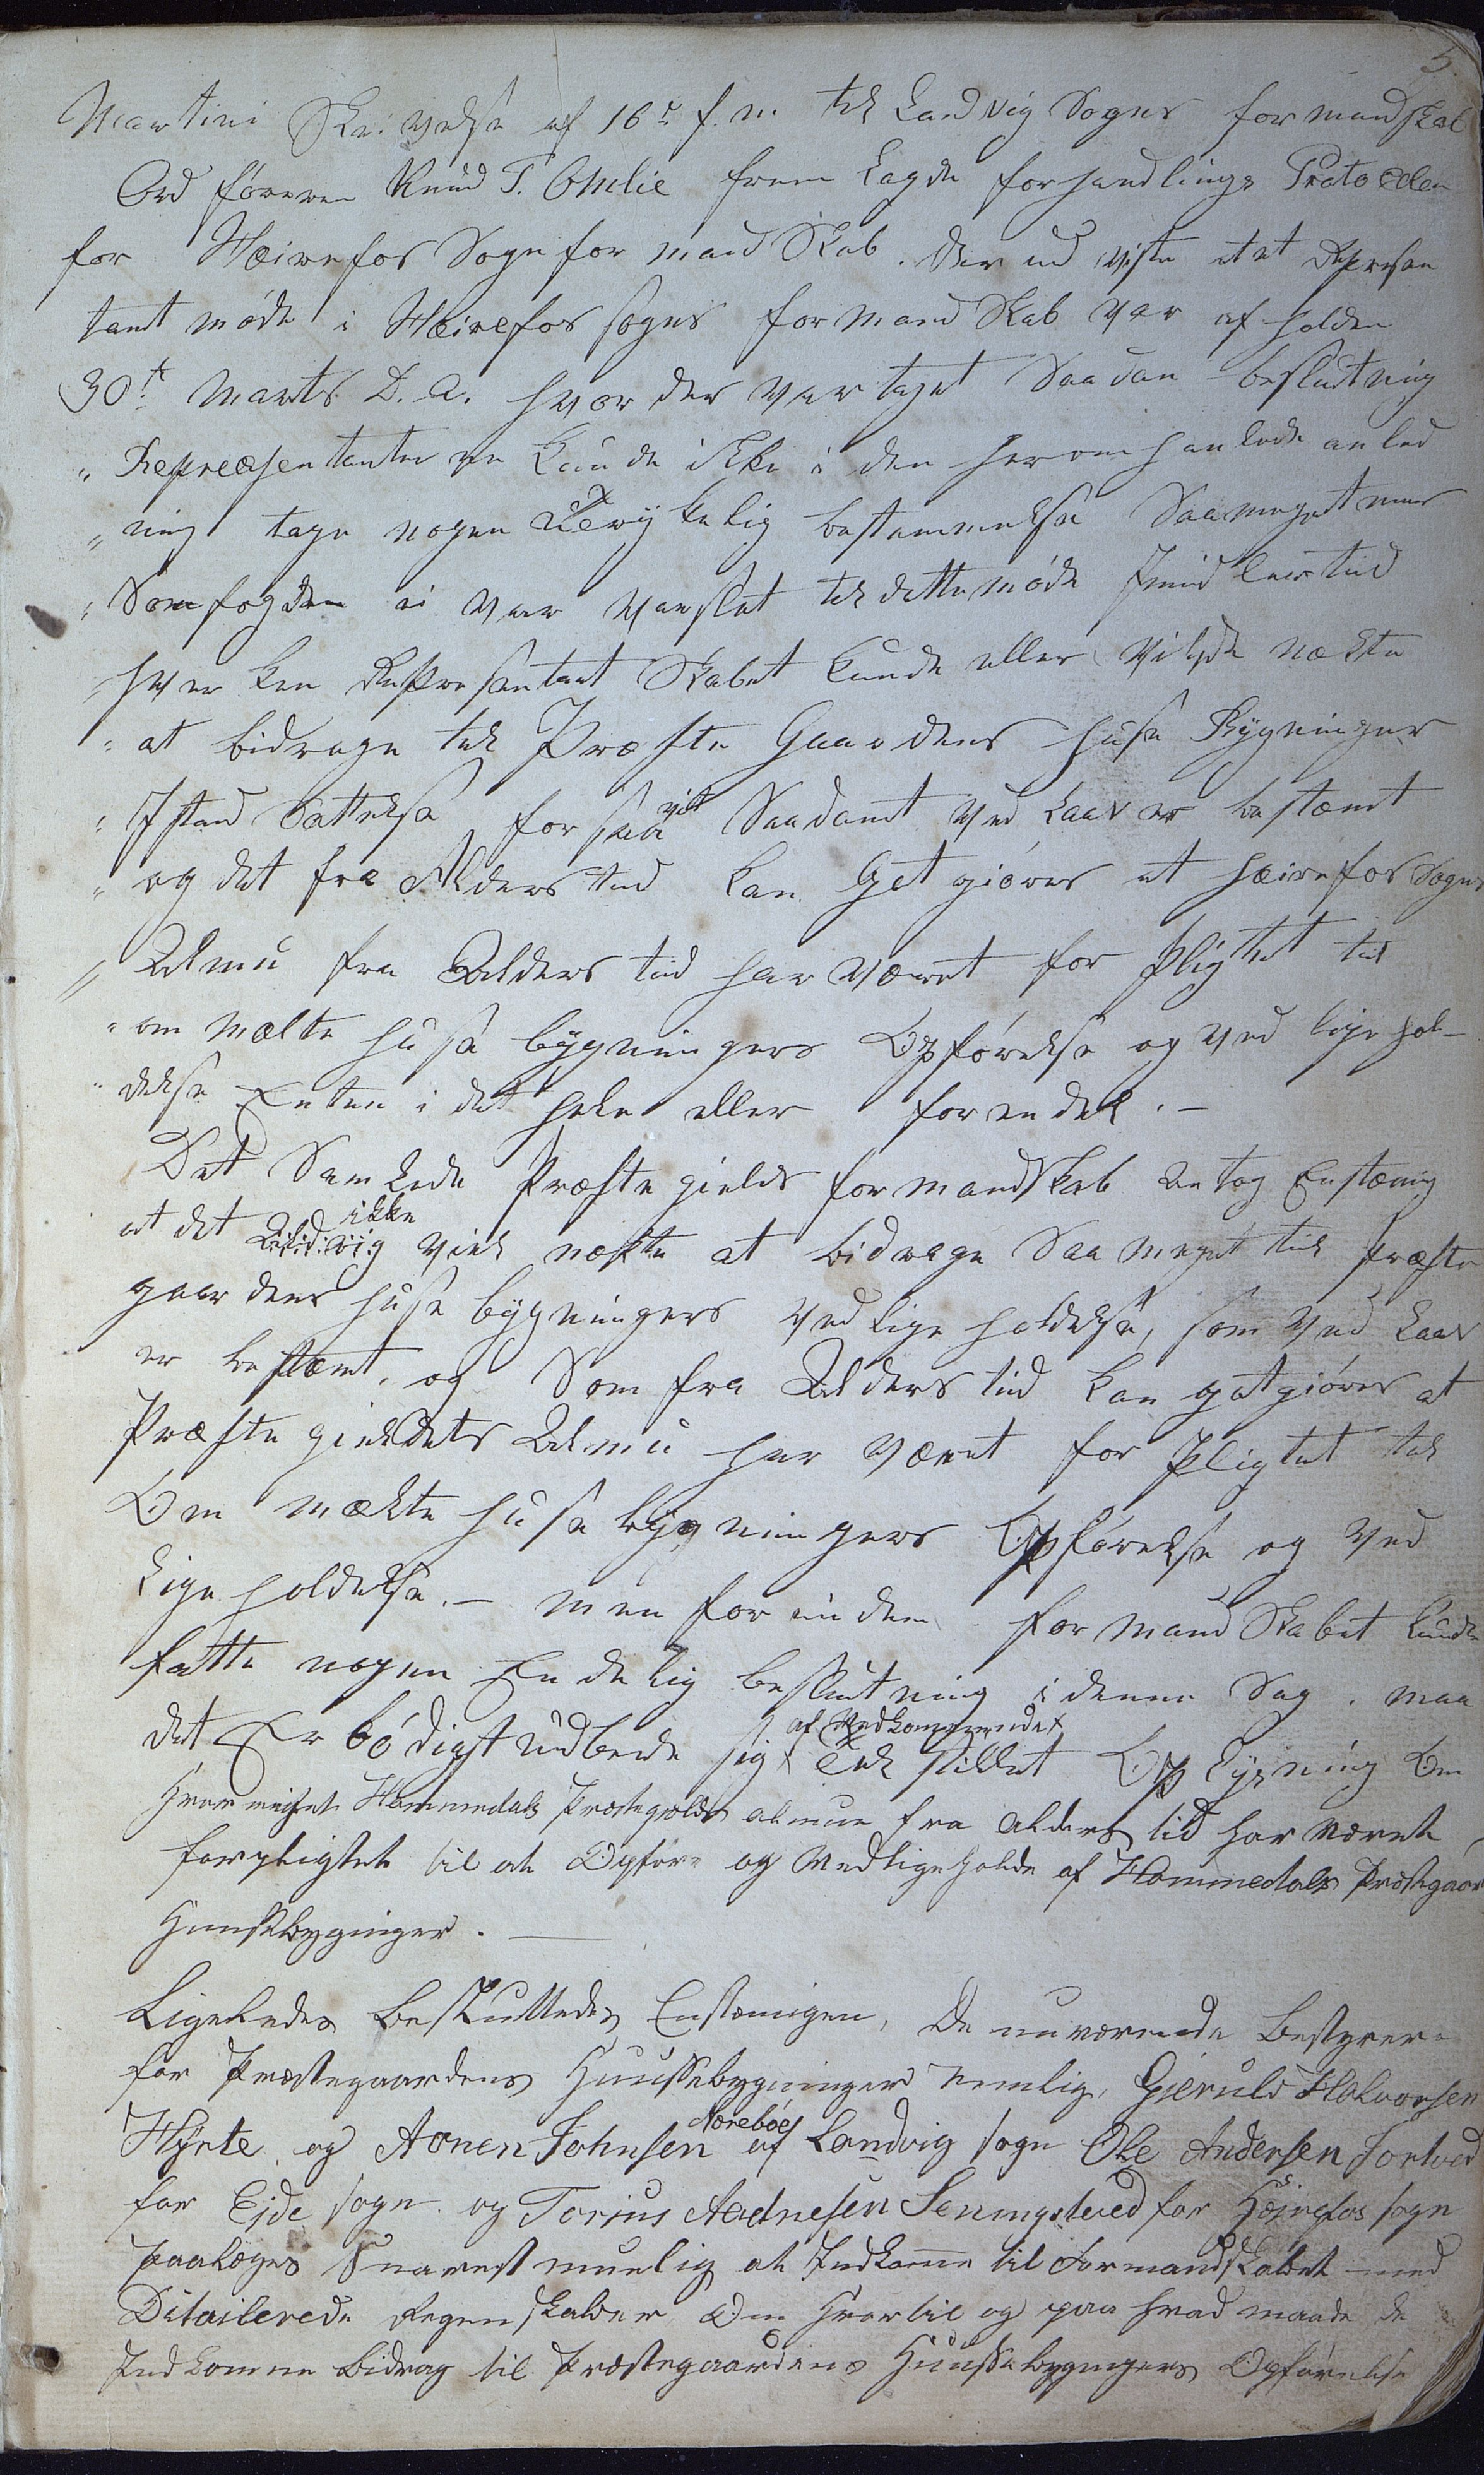 5.
Martini Skrivelse af 16de f. m. til Landvig Sogns formandskab
Ordføreren Knud T. Omlie frem lagde forhandlings Protocollen
for Heirefos Sogneformandskab. Der ud viste at et Represen
tant møde i Heirefos sogns formandskab var afholden
30te Marts D. A. hvor der var taget Saadan beslutning
„ Repræsentanterne kunde ikke i den herom handlede anled
„ ning tage nogen bestemmelse Saameget meer
„ Som fogden ei var varslet til dette møde Imidlertid
hverken Represantantskabet kunde eller vilde nekte
„ at bidrage til Præste Gaardens huse Bygninger
„ Istandsættelse forsaavit Saadant ved Laav er bestæmt
„ og det fra Alders tid kan Gotgiøres at Heirefos Sogns
„ Almu fra Alders tid har været for pligtet til
„ om mælte huse bygningers Opførelse og ved ligehol-
„ delse Enten i det hele eller for en del. —
Det Samlede Præste gields formandskab vetog Enstæmig
at det ikke viil nekte at bidrage Saameget til Præste
gaardens huse bygningers vedlige holdelse, som ved Laav
er bestæmt, og Som fra Alders tid kan gotgiøres at
Præste gieldets Almu har været for pligtet til
Om mælte huse bygningers Opførelse og ved
lige holdelse. — men for inden formandskabet kunde
fatte nogen Endelig beslutning i denne Sag. maa
det Erbødigst udbede sig af Vedkommende Til stillet Oplysning Om
hvor meget Hommedals Præstegields almue fra alders tid har været
forpligtet til at Opføre og vedligeholde af Hommedals Præstegaards
Huusebygninger. —
Ligeledes besluttedes Enstemigen, De nuværende Bestyrere
for Præstegaardens Huusebygninger nemlig, Gjeruld Halvorsen
Hyrte og Aanen Johnsen Norebøe af Landvig sogn Ole Andersen Fortved
for Eide sogn og Torjus Aadnesen Senumstved for Heirefos sogn
paalægges Snarest muelig at Indkomme til Formandskabet med
Ditailerede Regenskaber Om hvortil og paa hvad maade de
Indkomne Bidrag til Præstegaardens Huusebygningers Opførelse